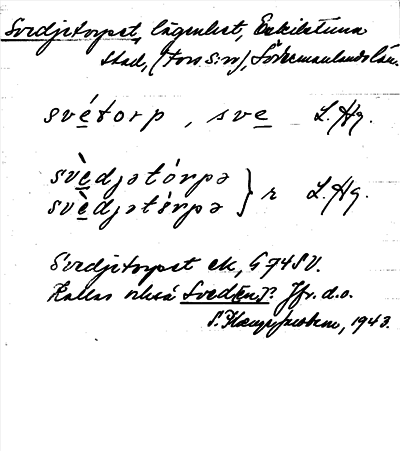 Svedjetorpet, lägenhet, Eskilstuna
stad, (Fors s:n), Södermanlands län.
svétorp, sve L. Hg.
svèdjətórpə
svèdjətórpə } r L. Hg.
Svedjetorpet ek, G 74 SV.
Kallas också Sved[en]? Jfr. d.o.
1943.